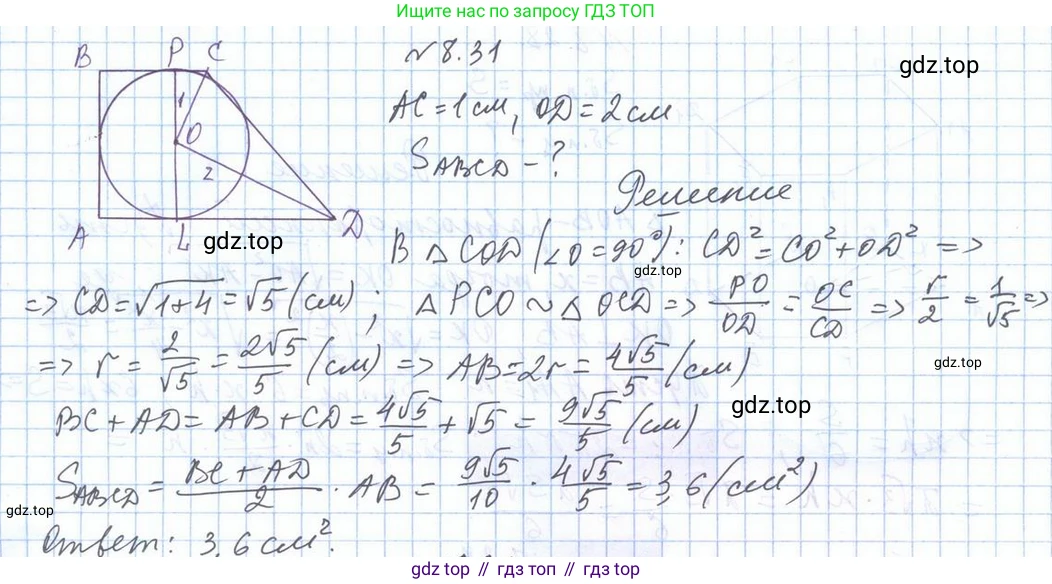 Ищите нас по запросу ГДЗ ТОП
B P C
1
O
2
A L D
№8.31
gdz.top
AC = 1 см, OD = 2 см
S_ABCD - ?
Решение
gdz.top
В △ COD (∠O = 90°): CD² = CO² + OD² =>
gdz.top
=> CD = √(1+4) = √5 (см) ; △ PCO ~ △ OCD => PO/OD = OC/CD => r/2 = 1/√5 =>
=> r = 2/√5 = 2√5/5 (см) => AB = 2r = 4√5/5 (см)
gdz.top
BC + AD = AB + CD = 4√5/5 + √5 = 9√5/5 (см)
gdz.top
S_ABCD = (BC + AD)/2 · AB = 9√5/10 · 4√5/5 = 3,6 (см²)
gdz.top
Ответ: 3,6 см².
gdz.top // гдз топ // gdz.top